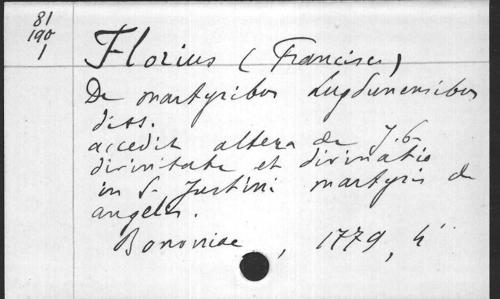 81
190
1
Florius (Franciscus)
De martyribus Lugdunensibus
diss.
accedit altera de
divinitate et divinatio
in S. Justini martyris de
angelis.
Bononiae, 1779, 4°